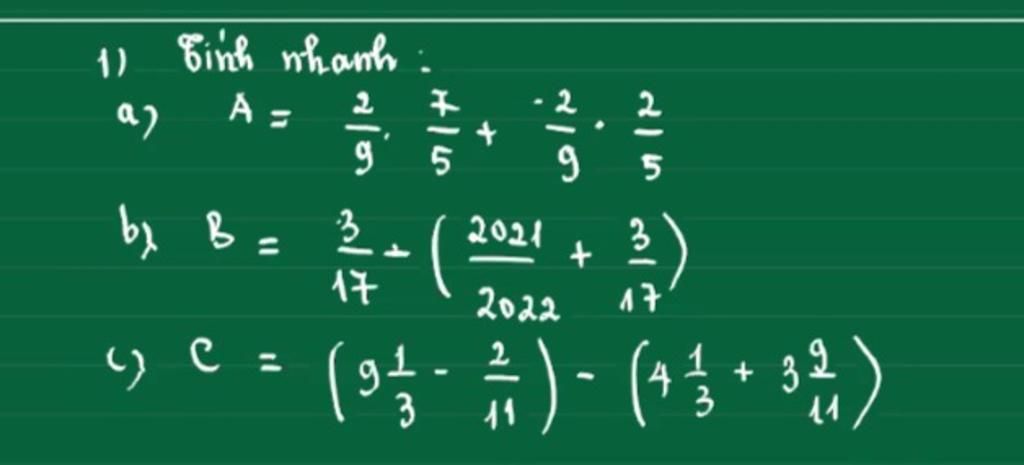 1) Tính nhanh :
a) A = 2/9 . 7/5 + -2/9 . 2/5
b) B = 3/17 - ( 2021/2022 + 3/17 )
c) C = ( 9 1/3 - 2/11 ) - ( 4 1/3 + 3 9/11 )